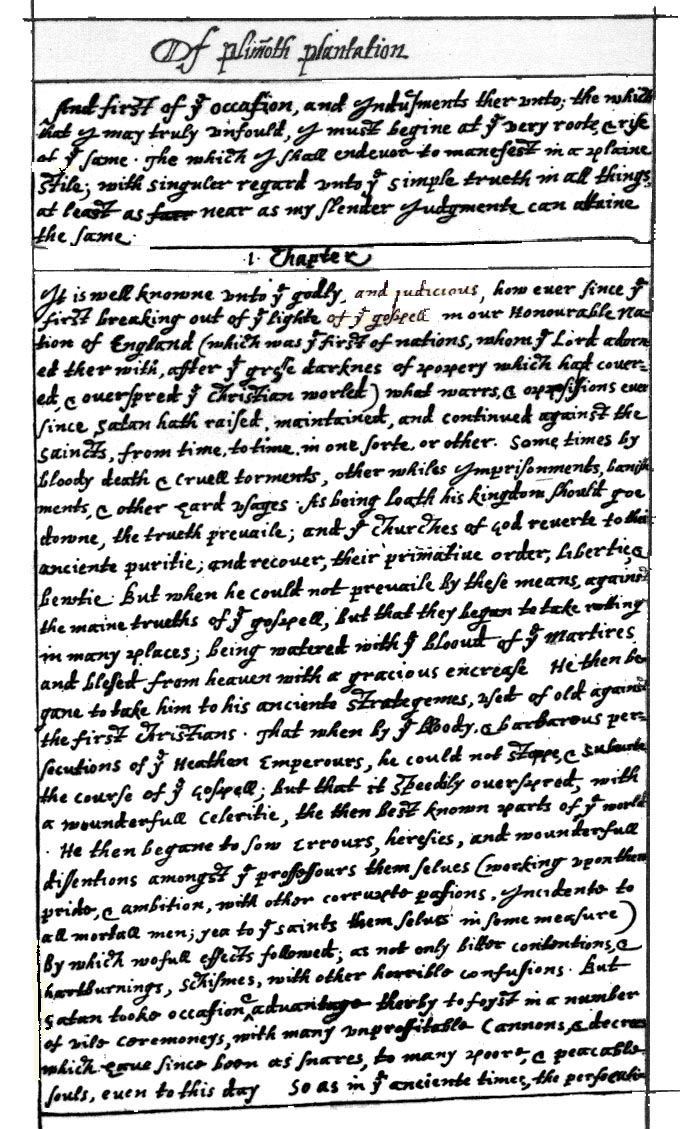 Of plim̃oth plantation
And first of yͤ occasion, and Indusments ther vnto; the which
that I may truly vnfould, I must begine at yͤ very roote, & rise
of yͤ same. The which I shall endevor to manefest in a plaine
stile; with singuler regard vnto yͤ simple trueth in all things,
at least as near as my slender Judgmente can attaine
the same.
·1· Chapter
It is well knowne vnto yͤ godly, and judicious, how ever since yͤ
first breaking out of yͤ lighte of yͤ gospell, in our Honourable Na=
tion of England (which was yͤ first of nations, whom yͤ Lord adorn
ed ther with, after yͤ grosse darknes of popery which had cover=
ed, & overspred yͤ Christian worled) what warrs, & oppossitions ever
since Satan hath raised, maintained, and continued against the
Saincts, from time, to time, in one sorte, or other. Some times by
bloody death & cruell torments, other whiles Imprisonments, banish=
ments, & other hard vsages. As being loath his kingdom should goe
downe, the trueth prevaile; and yͤ Churches of God reverte to their
anciente puritie; and recover, their primative order, libertie, &
bewtie. But when he could not prevaile by these means, against
the maine trueths of yͤ gospell, but that they began to take rotting
in many places; being watered with yͤ bloud of yͤ Martires,
and blesed from heaven with a gracious encrease. He then be=
gane to take him to his anciente strategemes, vsed of old against
the first Christians. That when by yͤ bloody, & barbarous per=
secutions of yͤ Heathen Emperours, he could not stoppe, & subuerte
the course of yͤ Gospell; but that it speedily overspred, with
a wounderfull celeritie, the then best known parts of yͤ world
. He then begane to sow Errours, heresies, and wounderfull
dissentions amongst yͤ professours them selves (working vpon their
pride, & ambition, with other corrupte passions, Incidente to
all mortall men; yea to yͤ saints them selves in some measure)
By which wofull effects followed; as not only bitter contentions, &
hartburnings, schismes, with other horrible confusions. But
Satan tooke occasion & advantage therby to foyst in a number
of vile ceremoneys, with many vnproffitable Cannons, & decrees
which have since been as snares, to many poore, & peacable
souls, even to this day. So as in yͤ anciente times, the persecutio